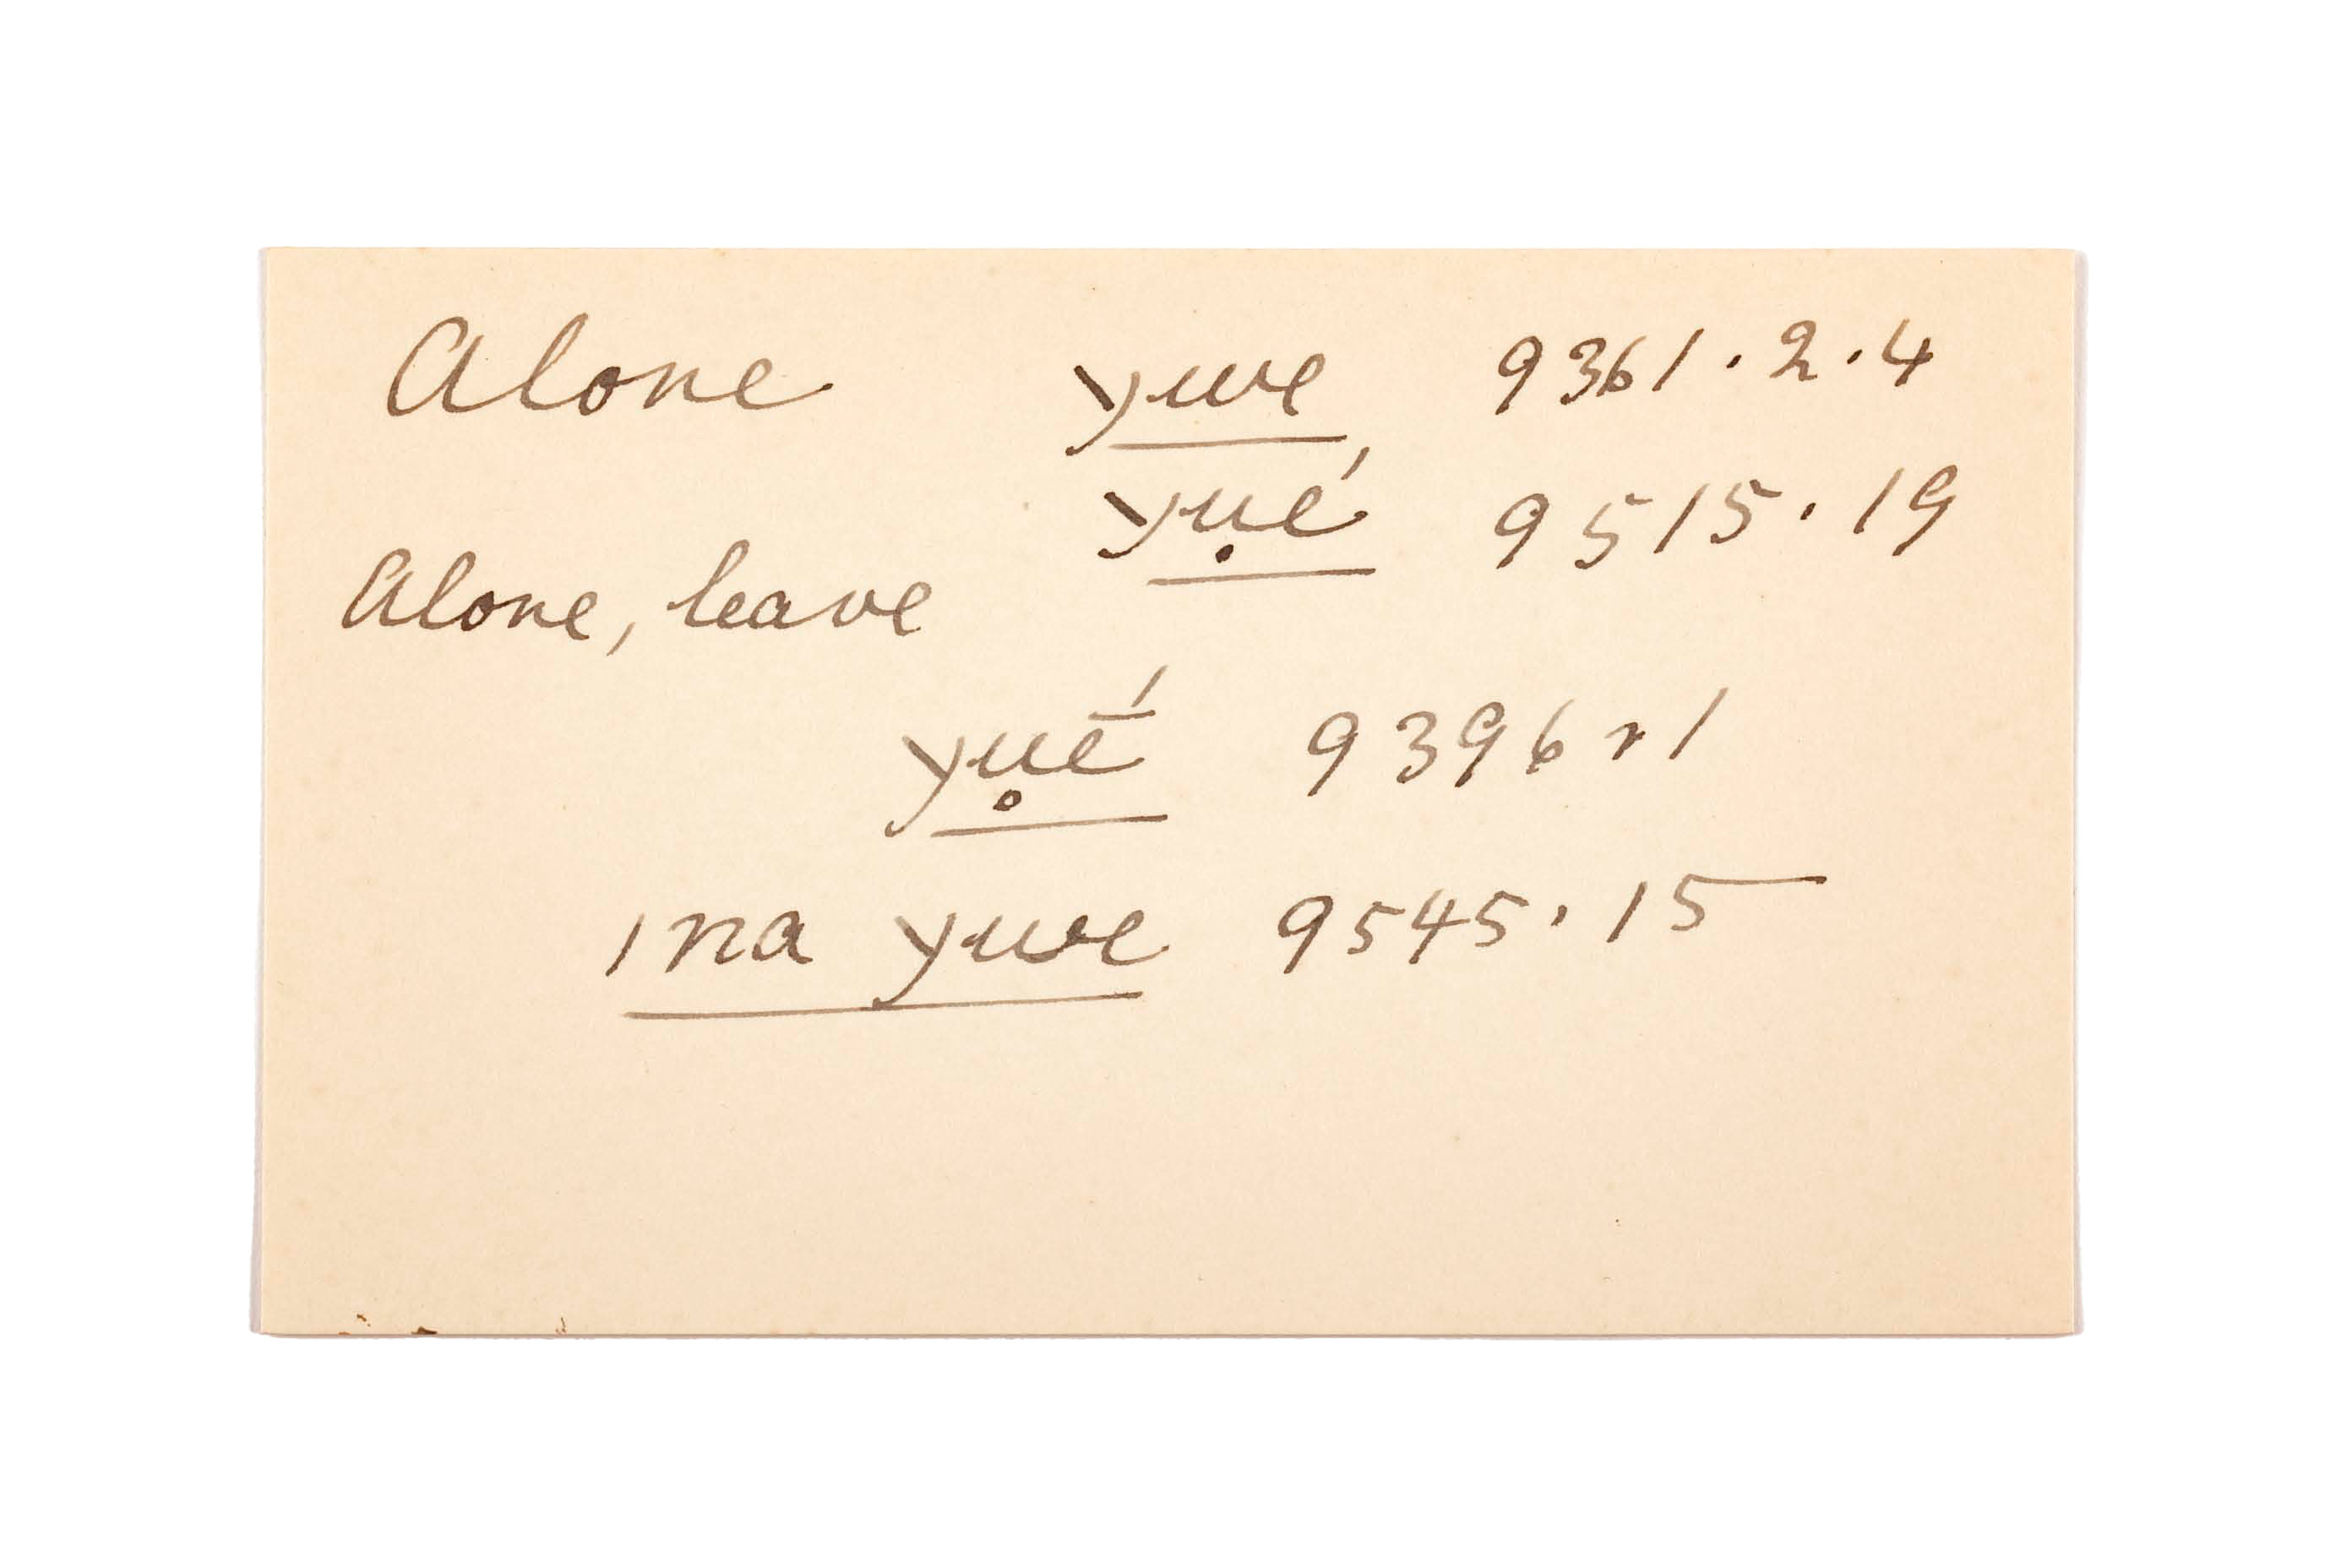 Alone yuve 9361.2.4
yụé 9515.19
Alone, leave
yụḗ 9396 r 1
ına yuve 9545.15